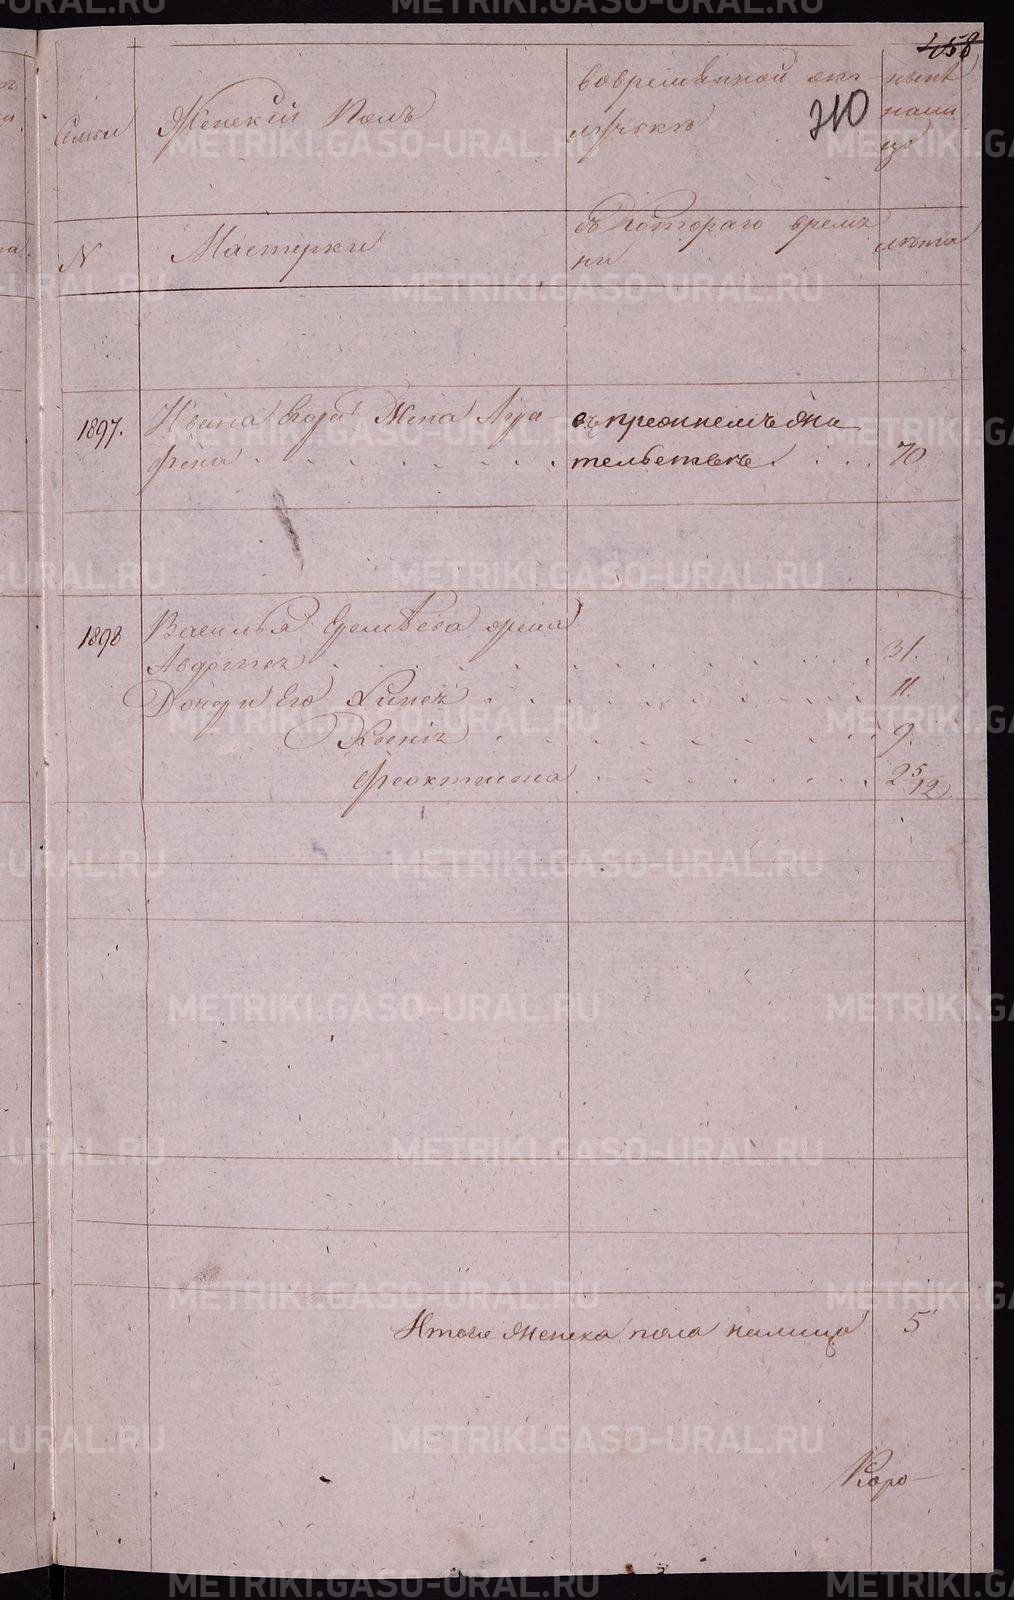 458
210
Семьи
Женский Полъ
вовременной отлучкѣ
нынѣ на лицо
N
Мастерки
съ Котораго времени
лѣта
1897.
Ивана Жена Агра
фена
въ прежнемъ жи
тельствѣ
70
1898
Василья Еремѣева жена
Авдотья
31.
Дочери Его
11.
Ксенія
9.
Феоктиста
2 5/12
Итого женска пола налицо 5
METRIKI.GASO-URAL.RU